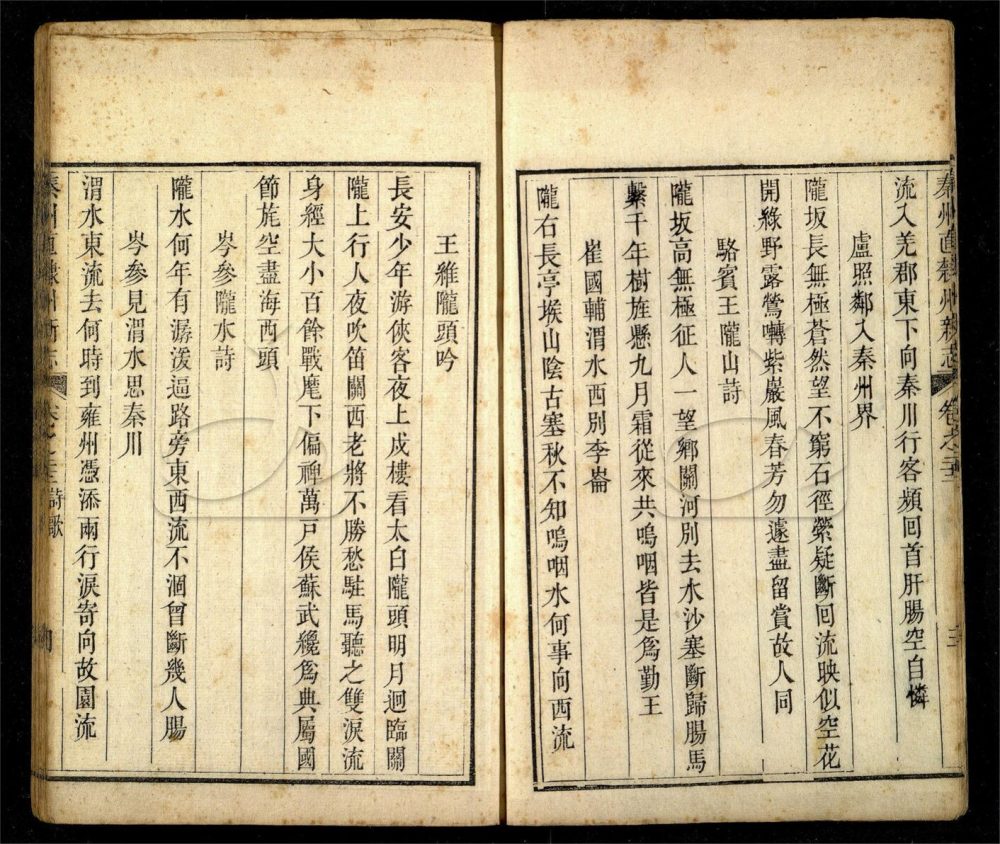 秦州直隸州新志 卷之二十三
流入羌郡東下向秦川行客頻回首肝腸空自憐
盧照鄰入秦州界
隴坂長無極蒼然望不窮石徑縈疑斷回流映似空花
開綠野露鶯囀紫巖風春芳勿遽盡留賞故人同
駱賓王隴山詩
隴坂高無極征人一望鄉關河別去水沙塞斷歸腸馬
繫千年樹旌懸九月霜從來共嗚咽皆是爲勤王
崔國輔渭水西別李崙
隴右長亭堠山陰古塞秋不知嗚咽水何事向西流
王維隴頭吟
長安少年游俠客夜上戍樓看太白隴頭明月迥臨關
隴上行人夜吹笛關西老將不勝愁駐馬聽之雙淚流
身經大小百餘戰麾下偏裨萬戸侯蘇武纔爲典屬國
節旄空盡海西頭
岑參隴水詩
隴水何年有潺湲逼路旁東西流不涸曾斷幾人腸
岑參見渭水思秦川
渭水東流去何時到雍州憑添兩行淚寄向故園流
秦州直隸州新志 卷之二十三 詩歌